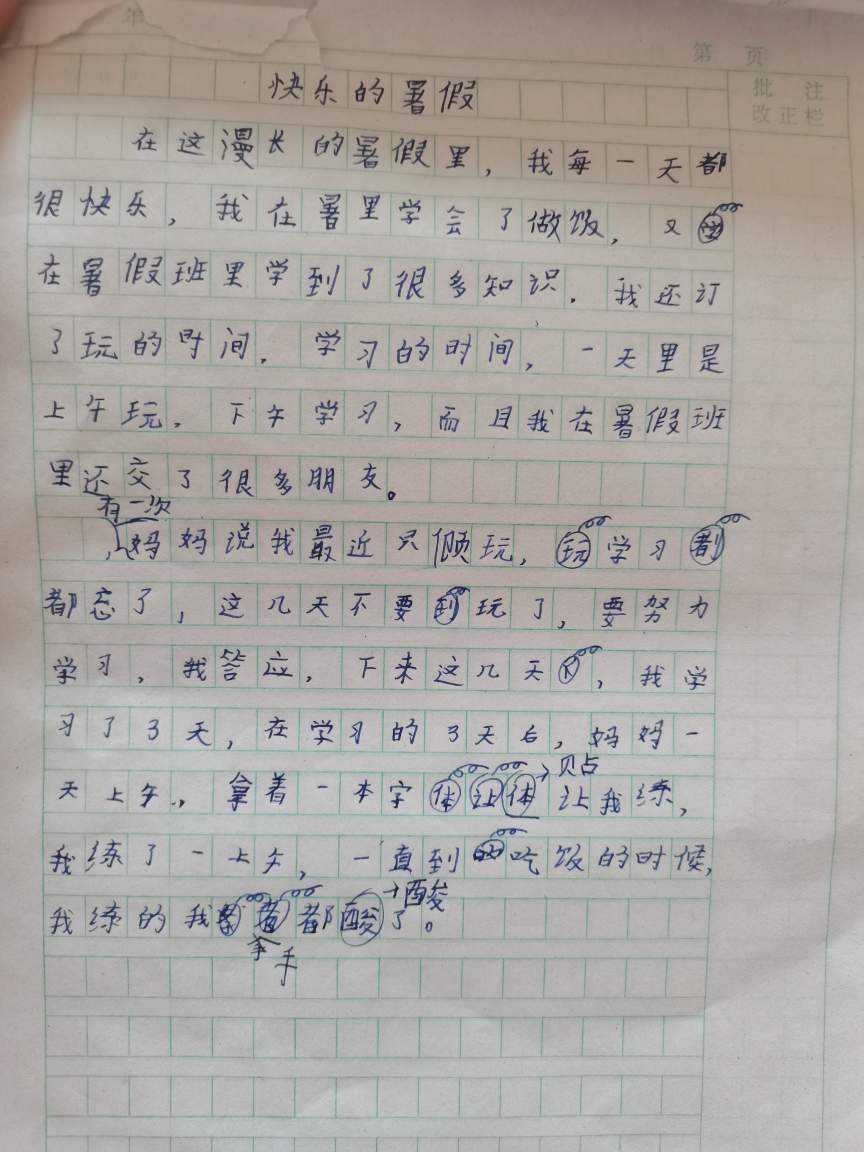 第 页
批 注
改正栏
快乐的暑假
在这漫长的暑假里，我每一天都
很快乐，我在暑里学会了做饭，又
在暑假班里学到了很多知识．我还订
了玩的时间．学习的时间，一天里是
上午玩．下午学习，而且我在暑假班
里还交了很多朋友。
有一次
，妈妈说我最近只顾玩，玩学习都
都忘了，这几天不要到玩了，要努力
学习，我答应，下来这几天，我学
习了3天，在学习的3天后，妈妈一
天上午，拿着一本字体让体让我练，
贝占
我练了一上午，一直到的吃饭的时候，
我练的我着都酸了。
酸
手